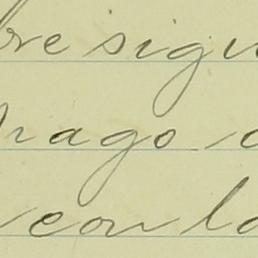 re sigu
rago
con la